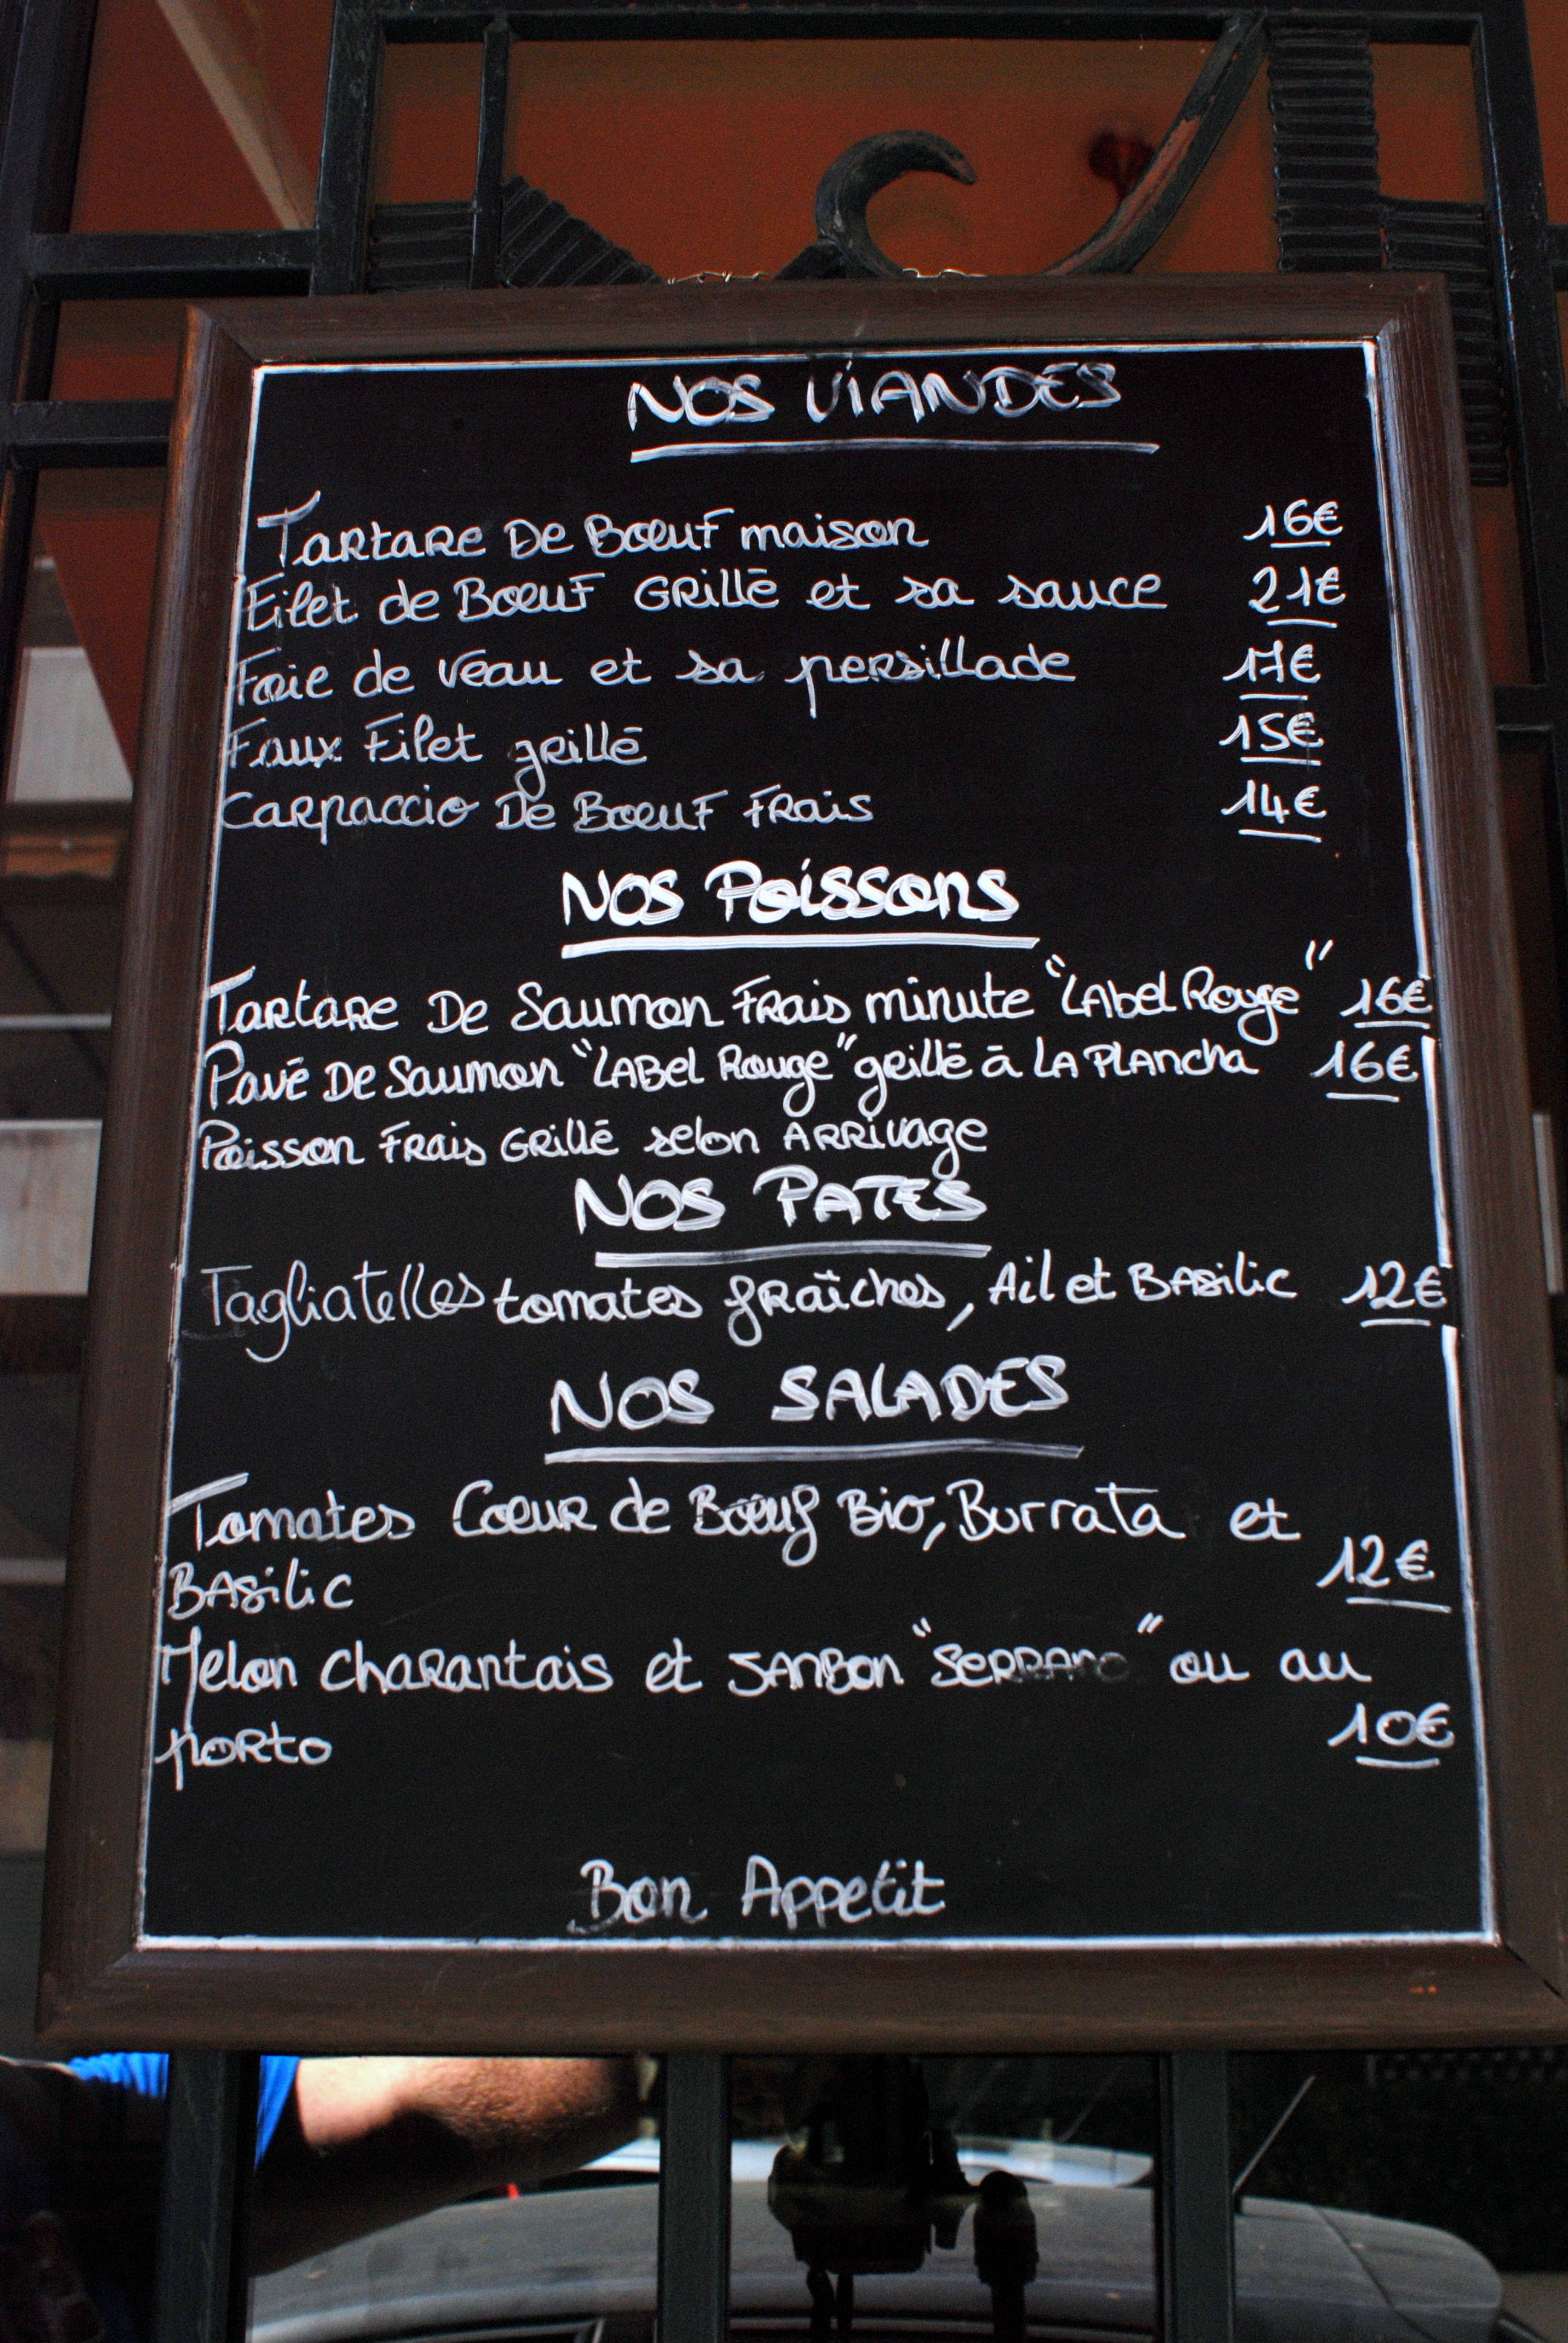 NOS VIANDES
Tartare De Bœuf maison 16€
Filet de Bœuf Grillé et sa sauce 21€
Foie de veau et sa persillade 17€
Faux Filet grillé 15€
Carpaccio De Bœuf Frais 14€
NOS Poissons
Tartare De Saumon Frais minute "Label Rouge" 16€
Pavé De Saumon "LABel Rouge" grillé à LA PLAncha 16€
Poisson Frais Grillé selon ARRivage
NOS PATES
Tagliatelles tomates fraîches, Ail et BAsilic 12€
NOS SALADES
Tomates Cœur de Bœuf Bio, Burrata et
BAsilic 12€
Melon charantais et JANBon "SeRRANO" ou au
porto 10€
Bon Appetit